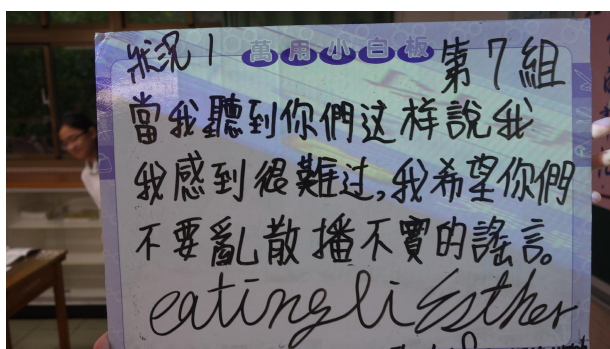 狀況1 萬用小白板 第7組
當我聽到你們这样說我
我感到很難过,我希望你們
不要亂散播不實的謠言。
eatingli Esther